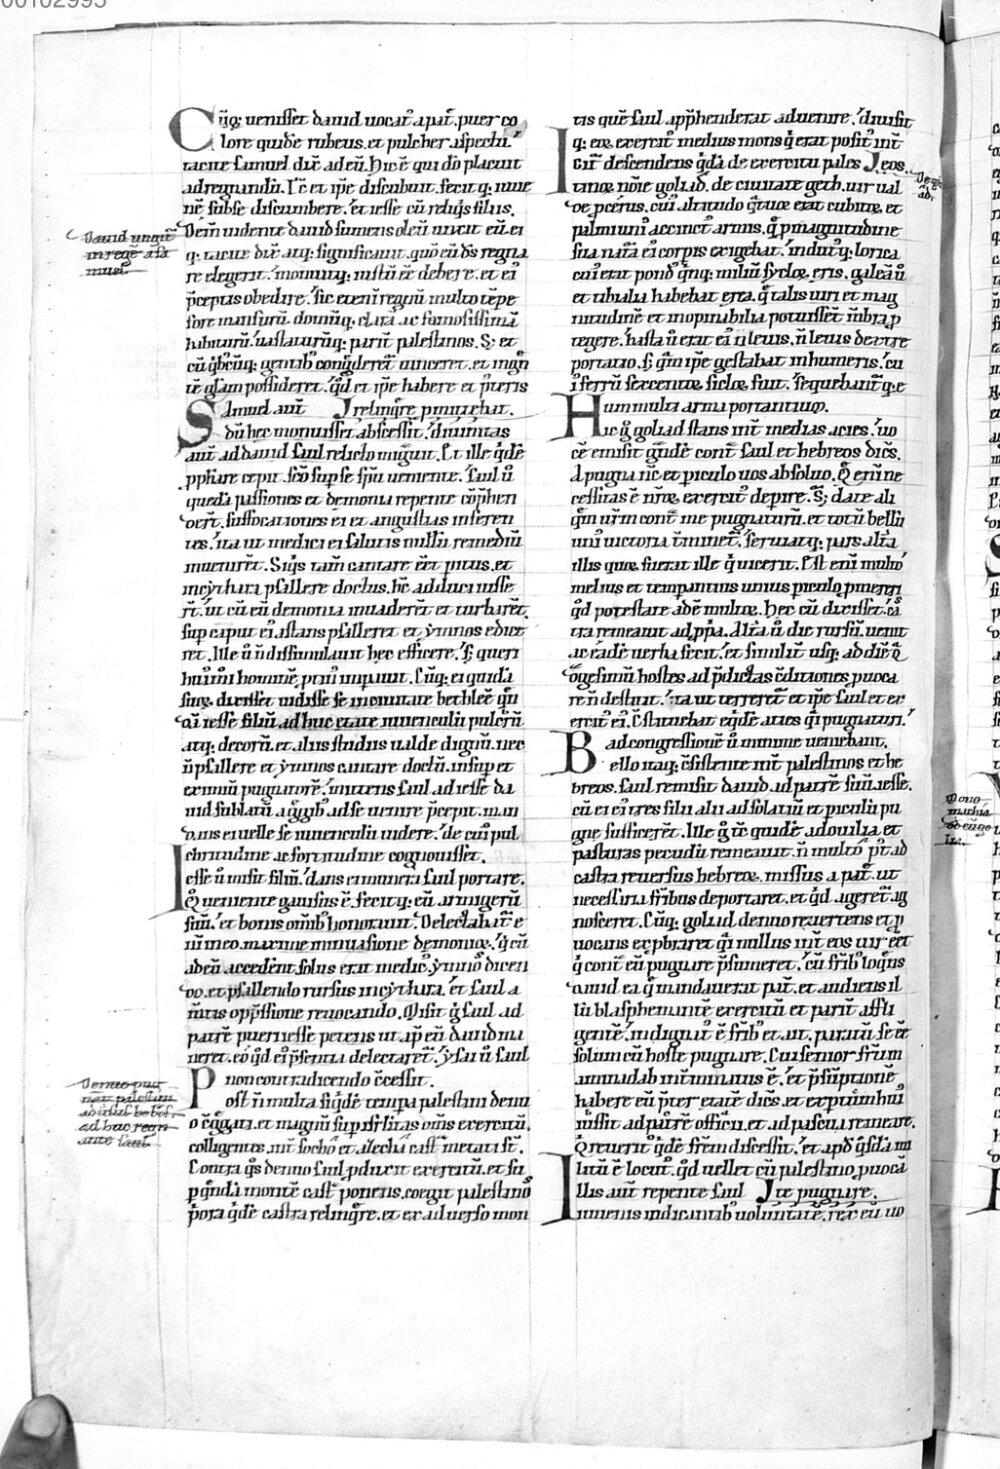 00102995
Cūq; uenisset dauid uocat᷒ a pat̄. puer co
lore quidē rubeus. et pulcher aspectu.
tacite samuel dix̄ ad eū. Hic ē qui dō placuit
ad regnandū. Et et ip̄e discubuit. fecitq; iuue
nē sub se discumbere. et iesse cū reliq̄s filiis.
Deīn uidente dauid sumens oleū unxit eū. ei
q; tacite dix̄ atq; significauit. quō eū dn̄s regna
re elegerit. monuitq; iustū ēē debere. et ei᷒
p̄ceptis obedire. sic etenī regnū multo tēpe
fore mansurū. domūq; clarā ac famosissimā
habiturū. uastaturūq; parit̄ palestinos. S; et
cū q̄bcūq; gentib᷒ congrederet̄ uinceret. et ingn̄
tē glām possideret. qd̄ et ip̄e habere et p̄teris
Samuel aut̄ relinq̄re p̄mittebat.
dū hec monuisset abscessit. diuinitas
aut̄ ad dauid saul relicto migauit. Et ille q̄dē
pphare cepit. scō sup se sp̄u ueniente. saul ū
quedā passiones et demonia repente cōphen
dert. suffocationes ei et angustias inferen
tes. ita ut medici ei salutis nullū remediū
inuenirēt. Siq̄s tam̄ cantare ēet pitus. et
in cythara psallere doctus. hc̄ adduci iusse
rt̄. ut cū eū demonia inuaderēt et turbarēt.
sup caput ei᷒ astans psalleret et ymnos edice
ret. Ille ū n̄ dissimulauit hec efficere. s; queri
hui᷒mi hominē. ptin᷒ imp̄auit. Cūq; ei quidā
suoꝝ dixisset uidisse se in ciuitate bethleē q̄n
dā iesse filiū adhuc etate iuuenculū pulcrū
atq; decorū. et aliis studiis ualde dignū. nec
n̄ psallere et ymnos cantare doctū. insup et
eximiū pugnatorē. mittens saul ad iesse da
uid sublatū a gregib᷒ ad se uenire p̄cepit. man
dans ei uelle se iuuenculū uidere. de cui᷒ pul
chritudine ac fortitudine cognouisset.
Iesse ū misit filiū. dans ei munera saul portare.
Q ueniente gauisus ē. fecitq; eū armigerū
suū. et honis om̄ib᷒ honorauit. Delectabat̄ e
ni᷒ in eo. maxime in inuasione demonioꝝ. q̄ cū
ad eū accederēt solus erat medic᷒. ymnos dicen
do. et psallendo rursus in cythara. et saul a
m̄tis opp̄ssione reuocando. Misit g̊ saul ad
patrē pueri iesse petens ut ap̄ eū dauid ma
neret. eo qd̄ ei᷒ p̄sentia delectaret̄. ysai ū saul
non contradicendo c̄cessit.
Post n̄ multa siq̄dē tempa palestini denu
o c̄gg̅ati. et magnū sup isrlitas om̄s exercitū.
colligentes. int̄ sochō et azecha cast̄ metati st̄.
Contra q̄s denuo saul pduxit exercitū. et su
p quēdā montē cast̄ ponens. coegit palestinos
pora q̄dē castra relinq̄re. et ex aduerso mon
tis quē saul app̄henderat aduenire. diuisit
q; eoꝝ exercit᷒ medius mons q̄ erat posit᷒ int̄
Igit̄ descendens q̄dā de exercitu pales eos.
tinoꝝ nōie goliad. de ciuitate geth. uir ual
de pcerus. cui᷒ altitudo q̄tuor erat cubitoꝝ. et
palmi uni᷒ accinct᷒ armis. q̄ p magnitudine
sua nat̄a ei᷒ corpis exigebat. indut᷒q; lorica
cui᷒ erat pond᷒ q̄nq; miliū sycloꝝ eris. galeā ū
et tibialia habebat erea. q̄ talis uiri et mag
nitudinē et inopinabilia potuissēt mēbra p
tegere. hasta ū erat ei᷒ n̄ leuis. n̄ leuis dextre
portatio. s; q̄m ip̄e gestabat in humeris. cu
i᷒ ferrū sexcentoꝝ sicloꝝ fuit. sequebant̄q; e
um multi arma portantium.
Hic g̊ goliad stans int̄ medias acies. uo
cē emisit grādē cont̄ saul et hebreos dicēs.
A pugna nc̄ et piculo uos absoluo. Q̄ enī ne
cessitas ē nr̄oꝝ exercit᷒ depire. S; date ali
q̄m ur̄m cont̄ me pugnaturū. et totū bellū
uni᷒ uictoria t̄minet̄. seruiatq; pars altā
illis quoꝝ fuerat ille q̄ uicerit. Est enī multo
melius et tempantius unius piculo pmereri
qd̄ potestate adē multoꝝ. Hec cū dixisset. cā
tra remeauit ad ppa. Altā ū die rursū. uenit
ac eadē uerba fecit. et similit̄ usq; ad diē q̄
dragesimū hostes ad p̄dictas c̄ditiones puoca
re n̄ destitit. ita ut terreret̄ et ip̄e saul et ex
ercit᷒ ei᷒. C̄stituebat̄ eq̄dē acies q̄si pugnaturi.
ad congressionē ū minime ueniebant.
Bello itaq; c̄sistente int̄ palestinos et he
breos. saul remisit dauid ad patrē suū iesse.
cū ei eēt tres filii alii ad solatiū et piculū pu
gne sufficerēt. Ille g̊ t̄c quidē ad ouilia et
pasturas pecudū remeauit. n̄ multo p᷒t ad
castra reuersus hebreoꝝ. missus a pat̄. ut
necessaria frībus deportaret. et qd̄ ageret̄ ag
nosceret. Cūq; goliad denuo reuertens et p
uocans expbraret q̄si nullus int̄ eos uir eēt
q̄ cont̄ eū pugnare p̄sumeret. cū frīb᷒ loq̄ns
dauid ea q̄ mandauerat pat̄. et audiens il
lū blasphemantē exercitū et parit̄ affli
gentē. indignat᷒ ē frīb᷒ et ait. paratū se ēē
solum cū hoste pugnare. Cui senior fr̄um
aminadab int̄minatus ē. et p̄sūptionē
habere eū pter etatē dicēs. et exptum hui᷒
iussit ad patrē officiū. et ad pascua remeare.
Q̄ reuerit᷒ q̄dē frēm discessit. et apd̄ q̄sdā mi
litū ē locut᷒. qd̄ uellet cū palestino puocā
Illis aut̄ repente saul te pugnare.
Iuuenis indicantib᷒ uoluntatē. rex eū uo
Dauid ungit̄
in regē a sa
muel.
Denuo pug
nant palestini
adū isrl betbf.
ad huc regn
ante saul.
De go
liad.
De mono
machia
dd cū go
lia.